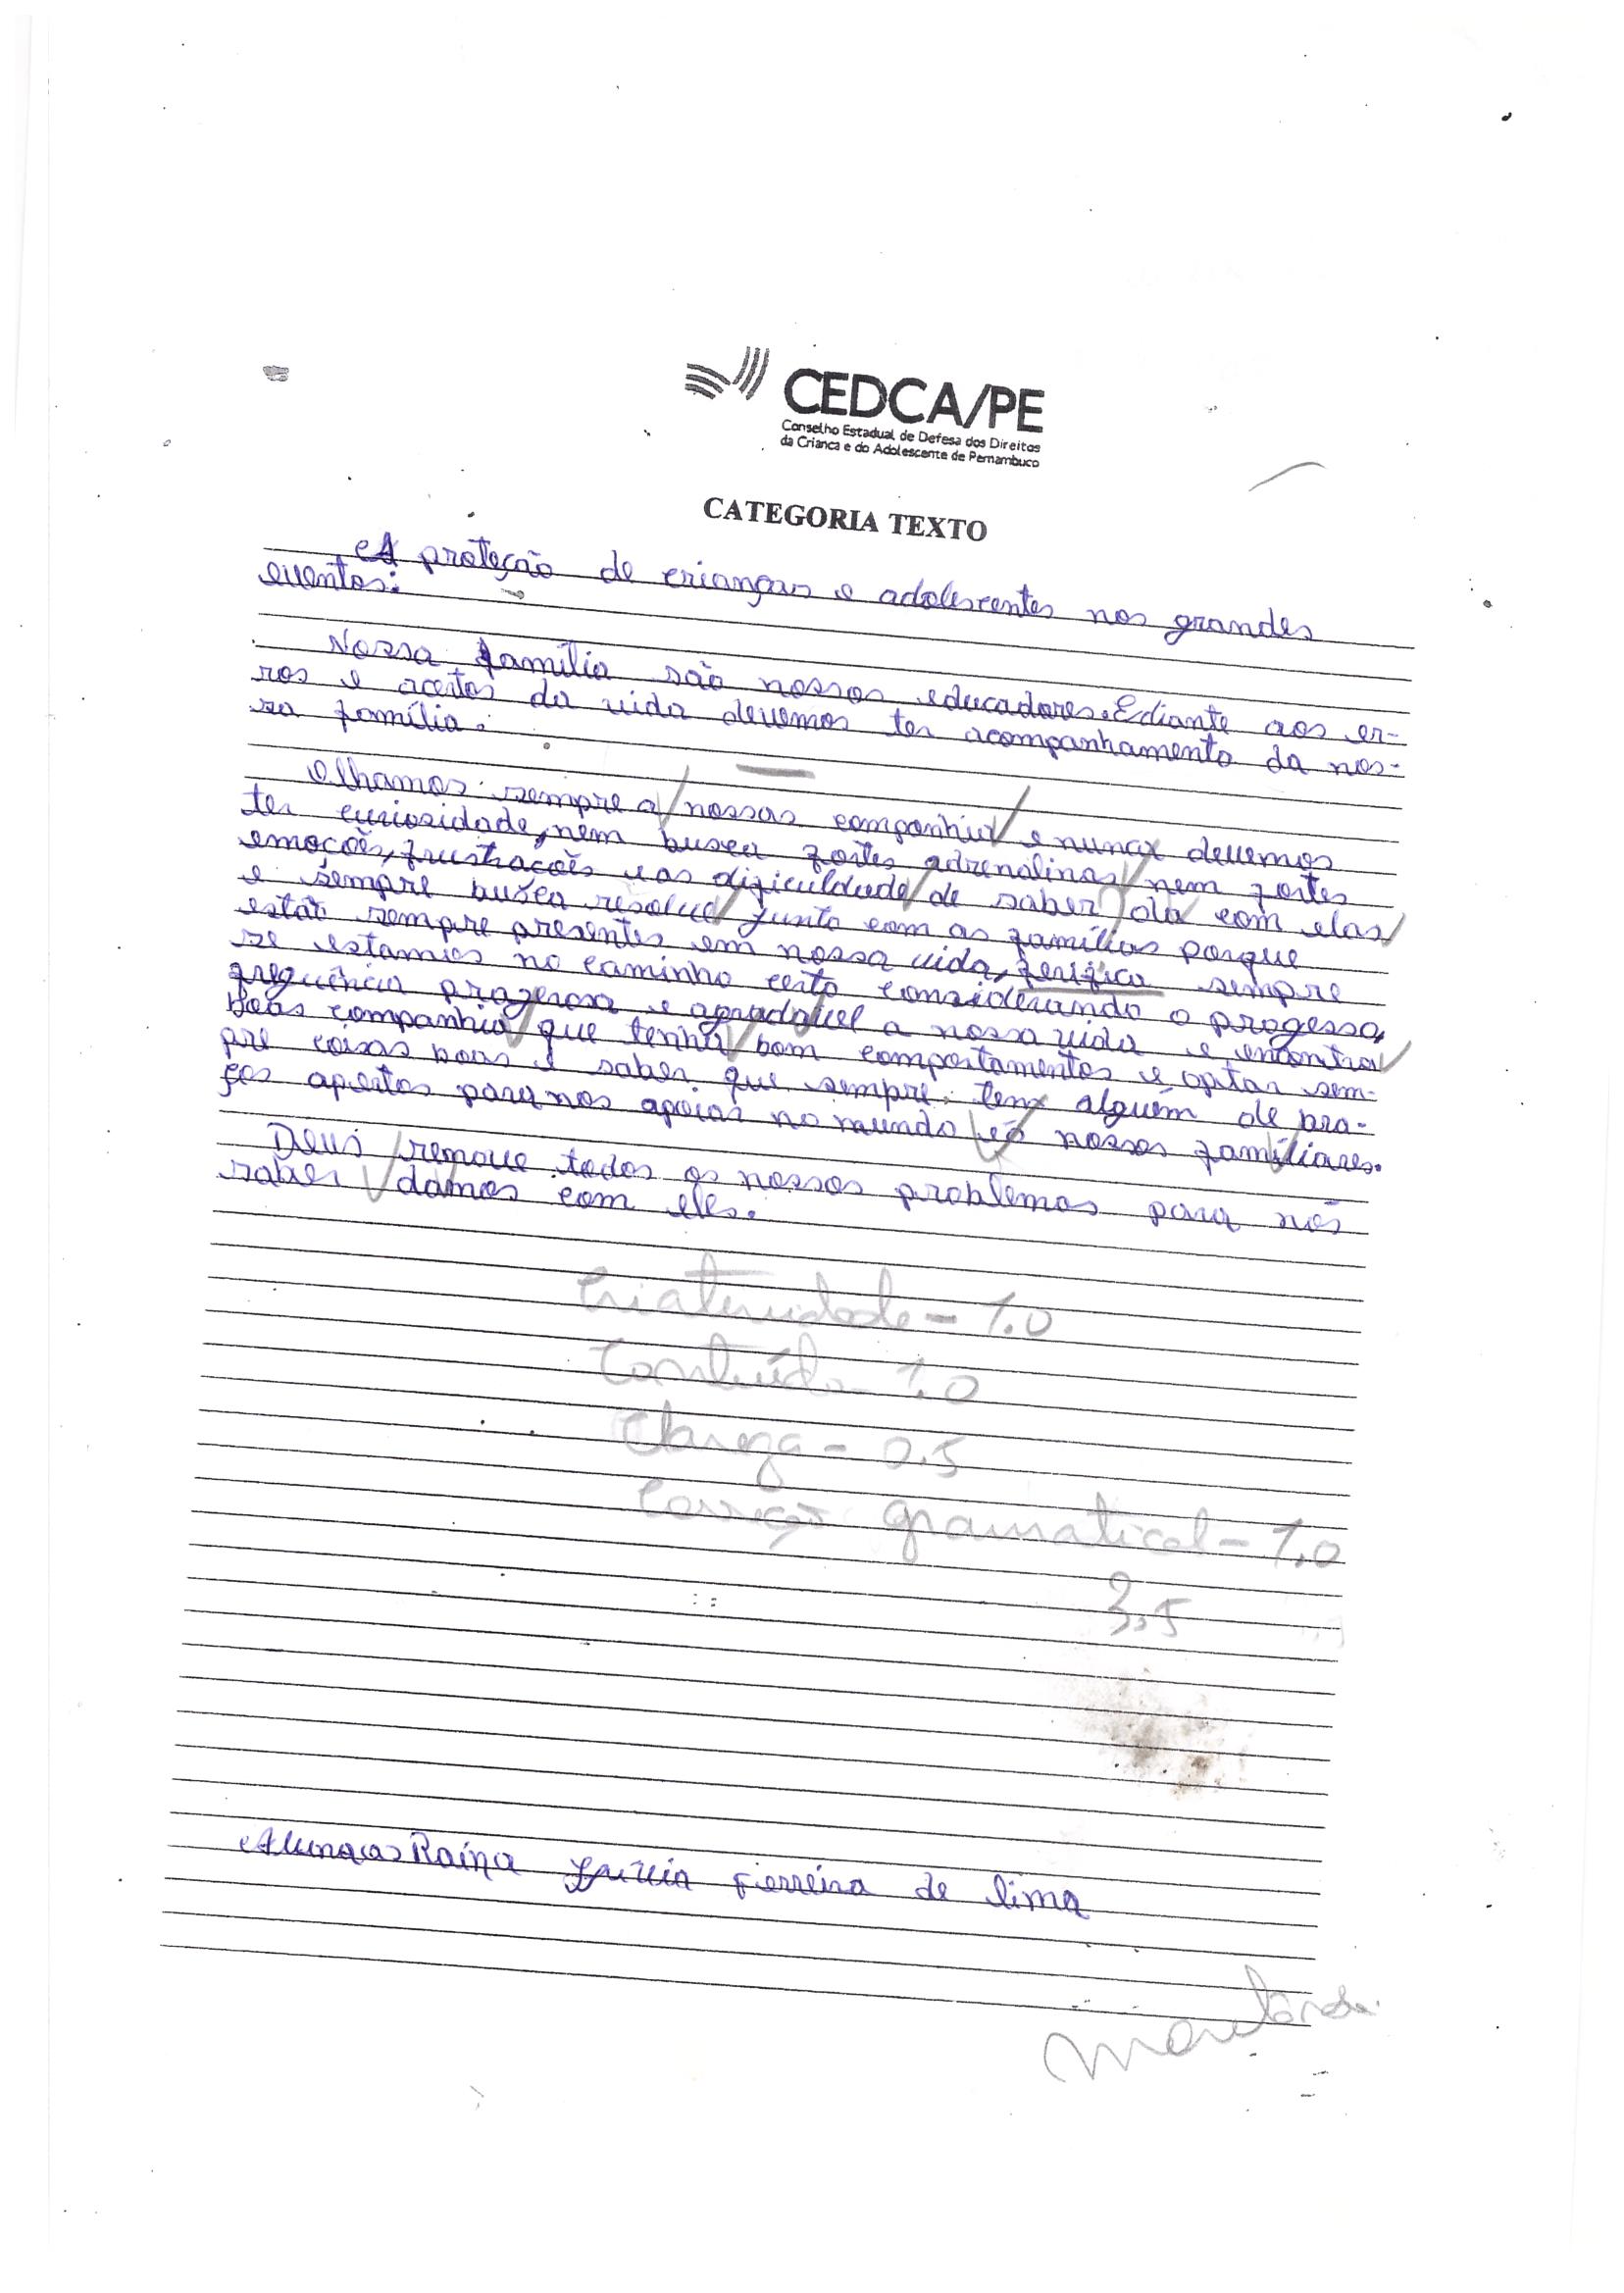 CEDCA/PE
Conselho Estadual de Defesa dos Direitos
da Criança e do Adolescente de Pernambuco
CATEGORIA TEXTO
A proteção de crianças e adolescentes nos grandes
eventos:
Nossa família são nossos educadores. E diante aos er-
ros e acertos da vida devemos ter acompanhamento da nos-
sa família.
Olhamos sempre a nossas companhia e nunca devemos
ter curiosidade, nem busca fortes adrenalinas nem fortes
emoções, frustracões e as dificuldade de saber da com elas
e sempre busca resolve junto com as famílias porque
estão sempre presentes em nossa vida, ferifica sempre
se estamos no caminho certo considerando o progesso,
frequência prazerosa e agradavel a nossa vida e encontra
boas companhia que tenha bom comportamentos e optar sem-
pre coisas boas e saber que sempre tem alguém de bra-
ços apertos para nos apoiar no mundo é nossos famíliares.
Deus remove todos os nossos problemas para nós
saber damos com eles.
Criatividade - 1.0
Conteúdo - 1.0
Clareza - 0.5
Correção gramatical - 1,0
3,5
Raína Ferreira de lima